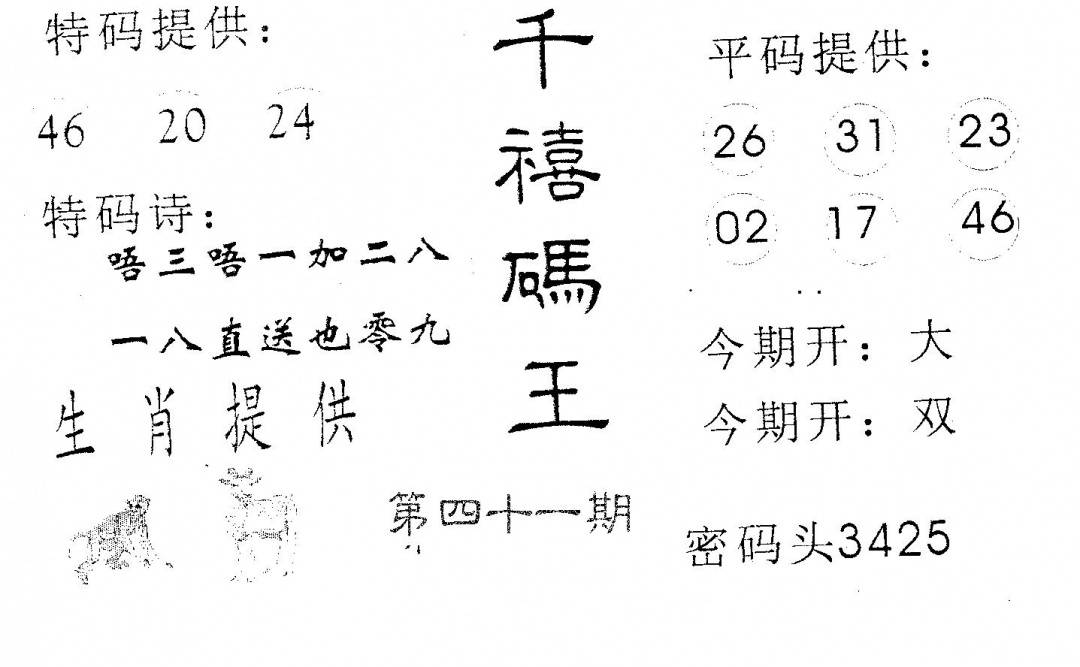 特码提供：
46 20 24
特码诗：
唔三唔一加二八
一八直送也零九
生肖提供
千禧碼王
第四十一期
平码提供：
26 31 23
02 17 46
今期开：大
今期开：双
密码头3425